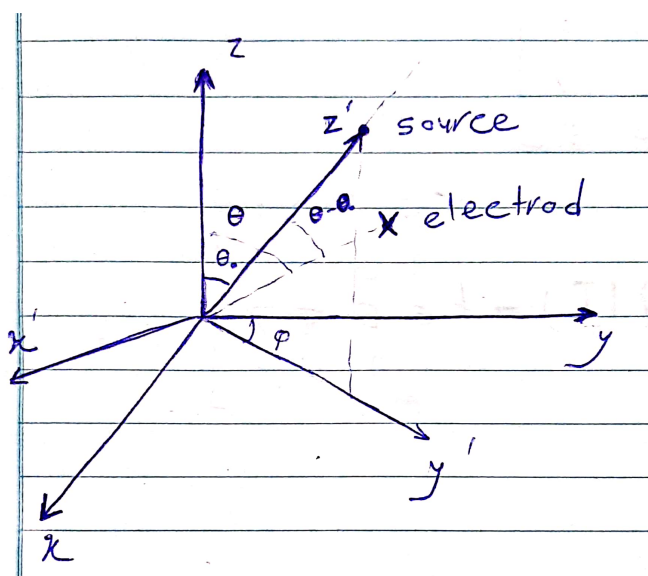 z
z' source
θ
θ-θ₀
x electrod
θ₀
x'
φ
y
y'
x